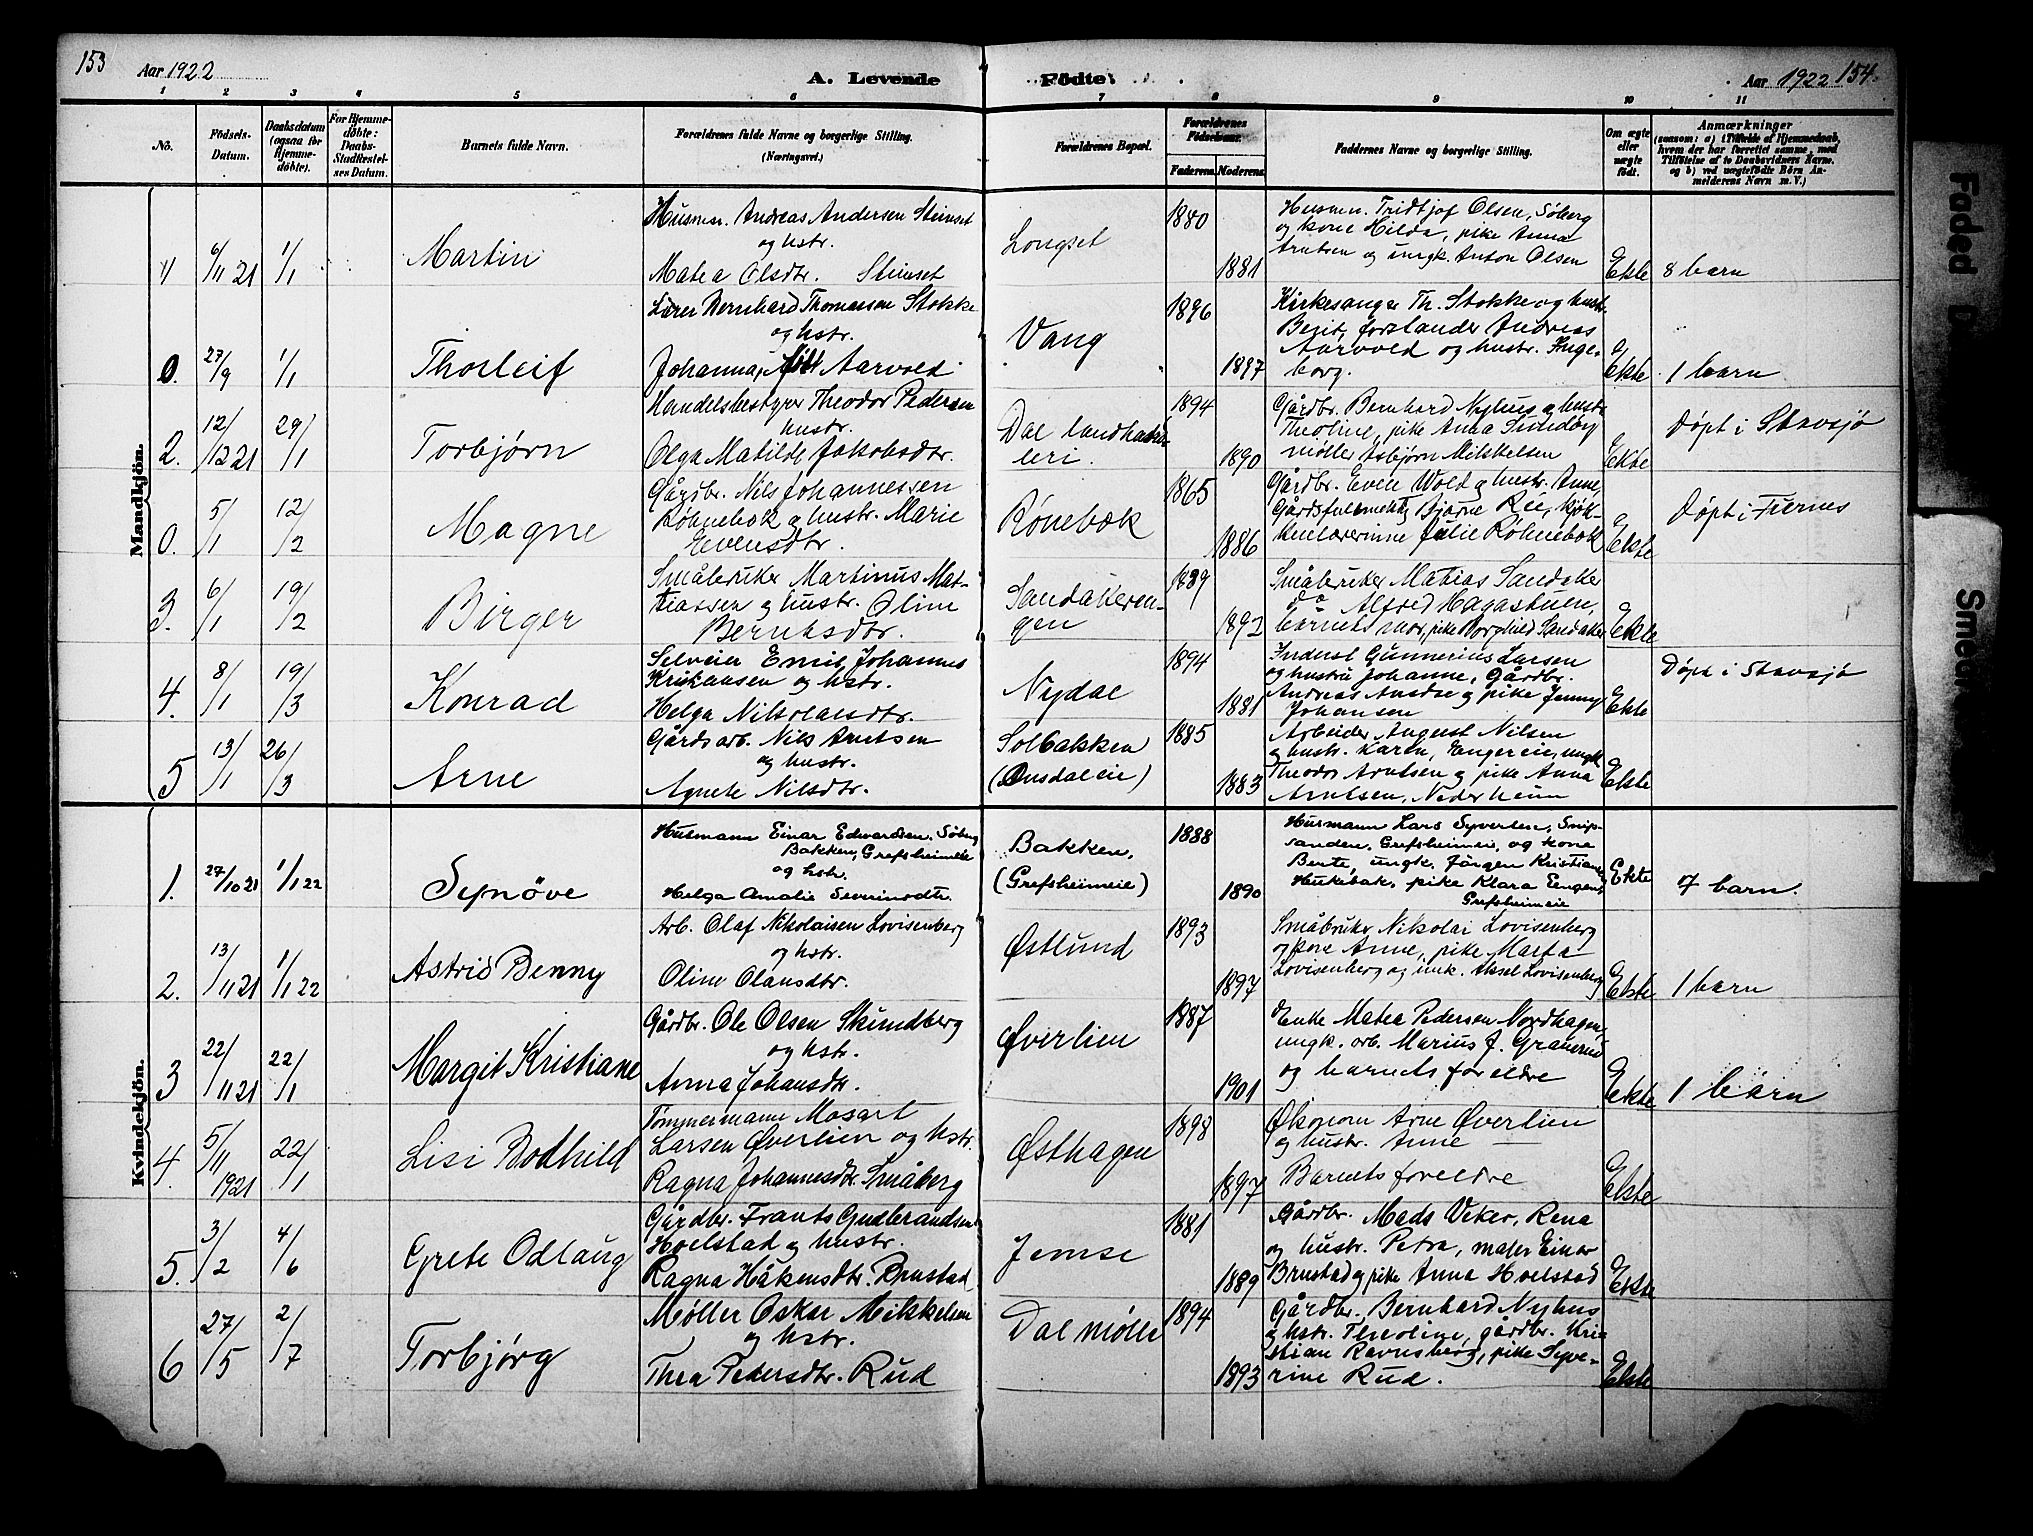 153
Aar 1922
A. Levende
Födte.
Aar 1922 154.
1 2 3 4 5 6 7 8 9 10 11
No.
Födsels-
Datum.
Daabsdatum
(ogsaa for
Hjemme-
döbte).
For Hjemme-
döbte:
Daabs-
Stadfæstel-
ses Datum.
Barnets fulde Navn.
Forældrenes fulde Navne og borgerlige Stilling.
(Næringsvei.)
Forældrenes Bopæl.
Forældrenes
Födselsaar.
Faderens.
Moderens.
Faddernes Navne og borgerlige Stilling.
Om ægte
eller
uægte
födt.
Anmærkninger
(saasom: a) (Tilfælde af Hjemmedaab,
hvem der har forrettet samme, med
Tilföielse af to Daabsvidners Navne.
og b) ved uægtefödte Börn An-
melderens Navn m. V.)
Mandkjön.
6/11 21
1/1
Martin
Husmn. Andreas Andersen Steinset
og hstr.
Matea Olsdtr. Steinset
Longset
1880
1881
Husmn. Fridtjof Olsen, Søberg
og kone Hilda, pike Anna
Arntsen og ungk. Anton Olsen
Ekte
8 barn
0.
27/9
1/1
Thorleif
Lærer Bernhard Thomassen Stokke
og hstr.
Johanna, født Aarvold
Vang
1896
1897
Kirkesanger Th. Stokke og hustr.
Berit, forstander Andreas
Aarvold og hustr. Inge-
borg.
Ekte
1 barn
2.
12/12 21
29/1
Torbjørn
Handelsbestyrer Theodor Pedersen
hustr.
Olga Matilde Jakobsdtr.
Dal landhand-
leri.
1894
1890
Gårdbr. Bernhard Nyhus og hustr.
Theoline, pike Anna Sundby
møller Asbjørn Mikkelsen
Ekte
Døpt i Stavsjø
0.
5/1
12/2
Magne
Gårdbr. Nils Johannessen
Røhnebæk og hustr. Marie
Evensdtr.
Rønebæk
1865
1886
Gårdbr. Even Wold og hustr. Anne,
Gårdsfullmekt. Bjarne Ree, kjøk-
kenlærerinne Julie Røhnebæk
Ekte
Døpt i Furnes
3.
6/1
19/2
Birger
Småbruker Martinus Mat-
tiassen og hustr. Oline
Berntsdtr.
Sandakeren-
gen
1889
1892
Småbruker Matias Sandaker
do Alfred Hagastuen,
barnets mor, pike Borghild Sandaker
Ekte
4.
8/1
19/3
Konrad
Selveier Emil Johannes
Kristiansen og hstr.
Helga Nikolaisdtr.
Nydal
1894
1881
Inderst Gunnerius Larsen
og hustru Johanne, Gårdbr.
Andreas Amdse og pike Jenny
Johansen
Ekte
Døpt i Stavsjø
5
13/1
26/3
Arne
Gårdsarb. Nils Arntsen
og hustr.
Agnete Nilsdtr.
Solbakken
(Ousdaleie)
1885
1883
Arbeider August Nilsen
og hustr. Karen, Engereie, ungk.
Theodor Arntsen og pike Anna
Arntsen, Nederheim
Ekte
Kvindekjön.
1.
27/10 21
1/1 22
Synøve
Husmann Einar Edwardsen, Søberg
Bakken, Grefsheimeie
og hstr.
Helga Amalie Severinsdtr.
Bakken,
(Grefsheimeie)
1888
1890
Husmann Lars Syversen, Snip-
sanden, Grefsheimeie, og kone
Berte, ungk. Jørgen Kristians.
Hukebak, pike Klara Eengen,
Grefsheimeie
Ekte
7 barn.
2.
13/11 21
1/1 22
Astrid Benny
Arb. Olaf Nikolaisen Lovisenberg
og hstr.
Oline Olausdtr.
Østlund
1893
1897
Småbruker Nikolai Lovisenberg
og kone Anne, pike Marta
Lovisenberg og unk. Aksel Lovisenberg
Ekte
1 barn
3
22/11 21
22/1
Margit Kristiane
Gårdbr. Ole Olsen Skundberg
og hstr.
Anna Johansdtr.
Øverlien
1887
1901
Enke Matea Pedersen Nordhagen,
ungk. arb. Marius J. Granerud
og barnets foreldre
Ekte
1 barn
4.
5/11 1921
22/1
Lisi Bodhild
Tømmermann Mosart
Larsen Øverlien og hstr.
Ragna Johannesdtr. Småberg
Østhagen
1898
1897
Økonom Arne Øverlien
og hustr. Anne
Barnets foreldre
Ekte
5.
3/2
4/6
Grete Odlaug
Gårdbr. Frants Gudbrandsen
Hoelstad og hustr.
Ragna Håkensdtr. Brustad
Jemse
1881
1889
Gårdbr. Mads Veker, Rena
og hustr. Petra, maler Einar
Brustad og pike Anna Hoelstad
Ekte
6
27/5
2/7
Torbjørg
Møller Oskar Mikkelsen
og hstr.
Thea Pedersdtr. Rud
Dal mølle
1894
1893
Gårdbr. Bernhard Nyhus
og hstr. Theoline, gårdbr. Kris
stian Ravnsberg, pike Syve-
rine Rud.
Ekte
Faded
Smed